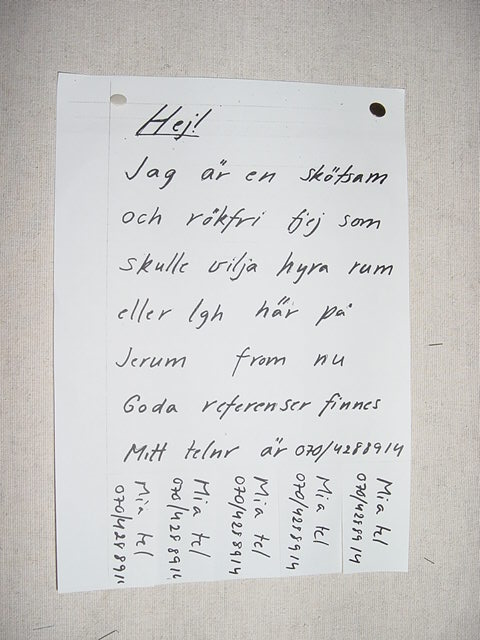 Hej!
Jag är en skötsam
och rökfri tjej som
skulle vilja hyra rum
eller lgh här på
Jerum from nu
Goda referenser finnes
Mitt telnr är 070/4288914
Mia tel
070/4288914
Mia tel
070/4288914
Mia tel
070/4288914
Mia tel
070/4288914
Mia tel
070/4288914